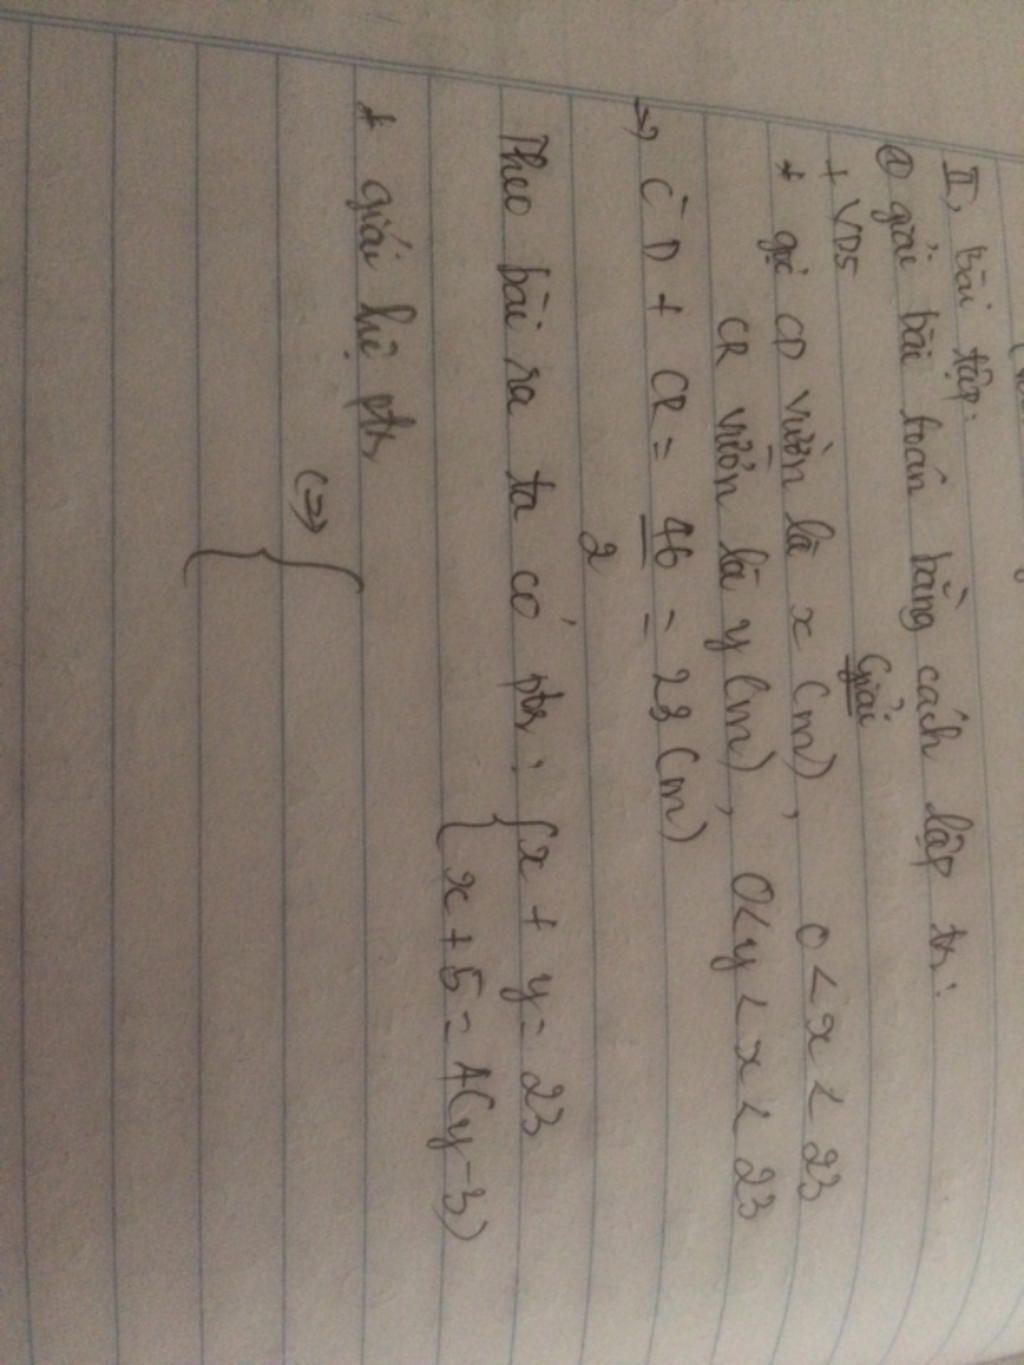 II, Bài tập.
a giải bài toán bằng cách lập tr:
+ VD5
Giải
* gọi CD vườn là x (m), 0 < x < 23
CR vườn là y (m), 0 < y < x < 23
→ CD + CR = 46/2 = 23 (m)
Theo bài ra ta có ptr: { x + y = 23
{ x + 5 = 4(y - 3)
* giải hệ ptr
(=> {
{